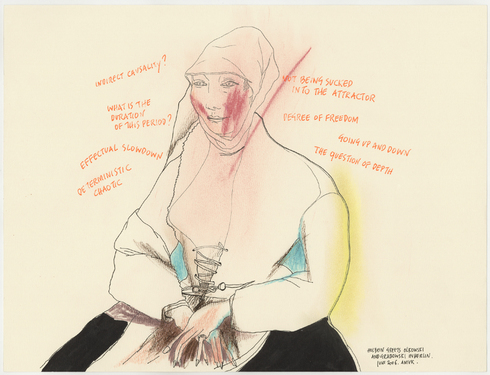 INDIRECT CAUSALITY?
WHAT IS THE
DURATION
OF THIS PERIOD?
EFFECTUAL SLOWDOWN
DETERMINISTIC
CHAOTIC
NOT BEING SUCKED
INTO THE ATTRACTOR
DEGREE OF FREEDOM
GOING UP AND DOWN
THE QUESTION OF DEPTH
MEETS
IN BERLIN.